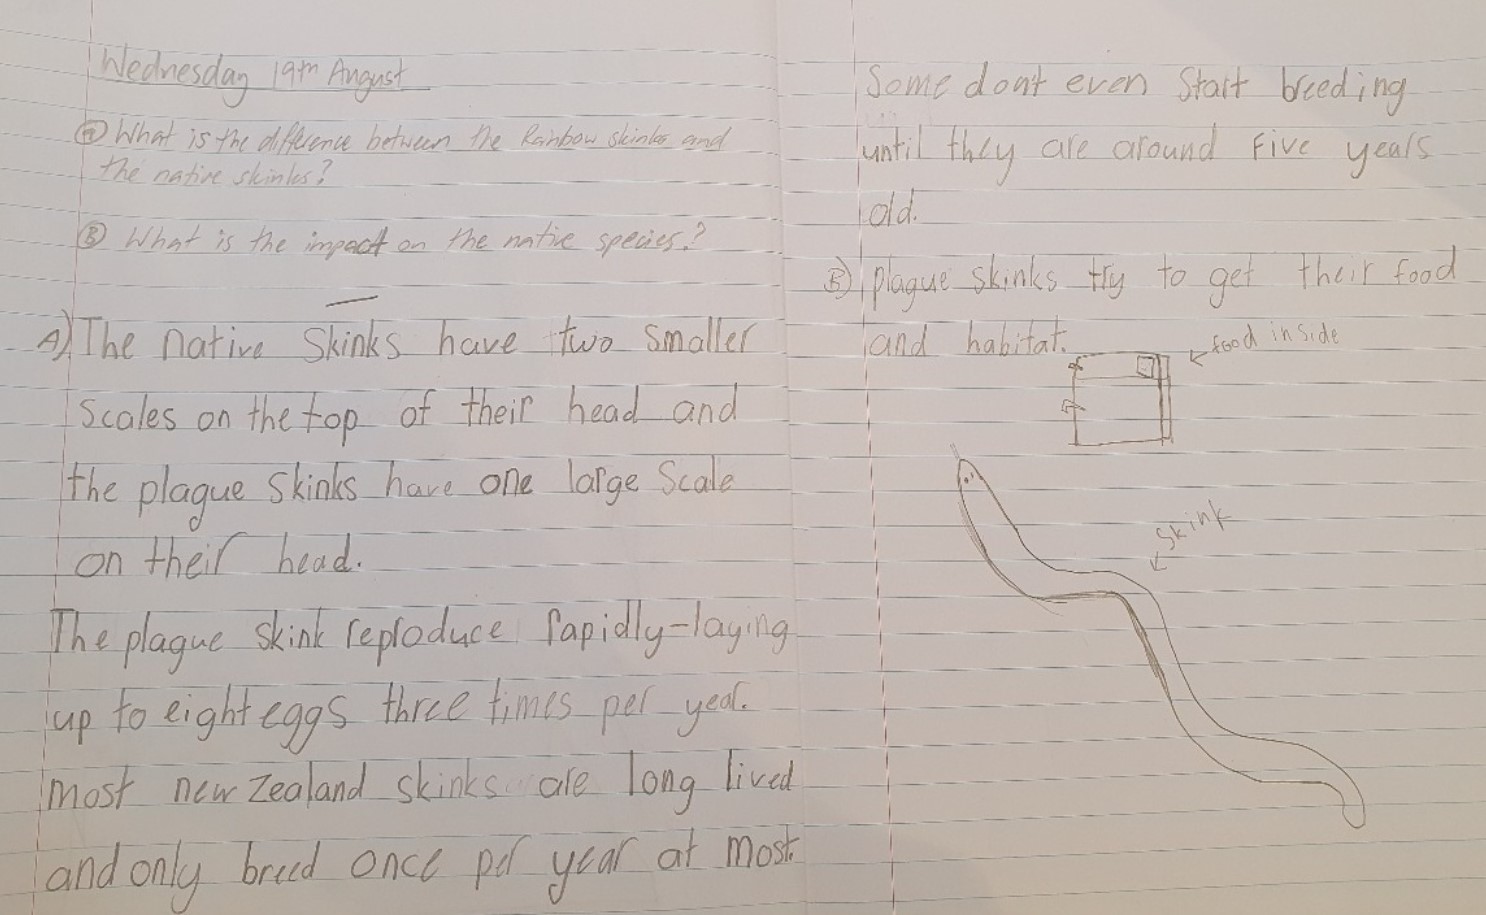 Wednesday 19th August
(A) What is the difference between the Rainbow skinks and
the native skinks?
(B) What is the impact on the native species?
A) The native skinks have two smaller
scales on the top of their head and
the plague skinks have one large scale
on their head.
The plague skink reproduce rapidly-laying
up to eight eggs three times per year.
most new zealand skinks are long lived
and only breed once per year at most.
Some dont even start breeding
until they are around five years
old.
B) plague skinks try to get their food
and habitat.
food inside
skink